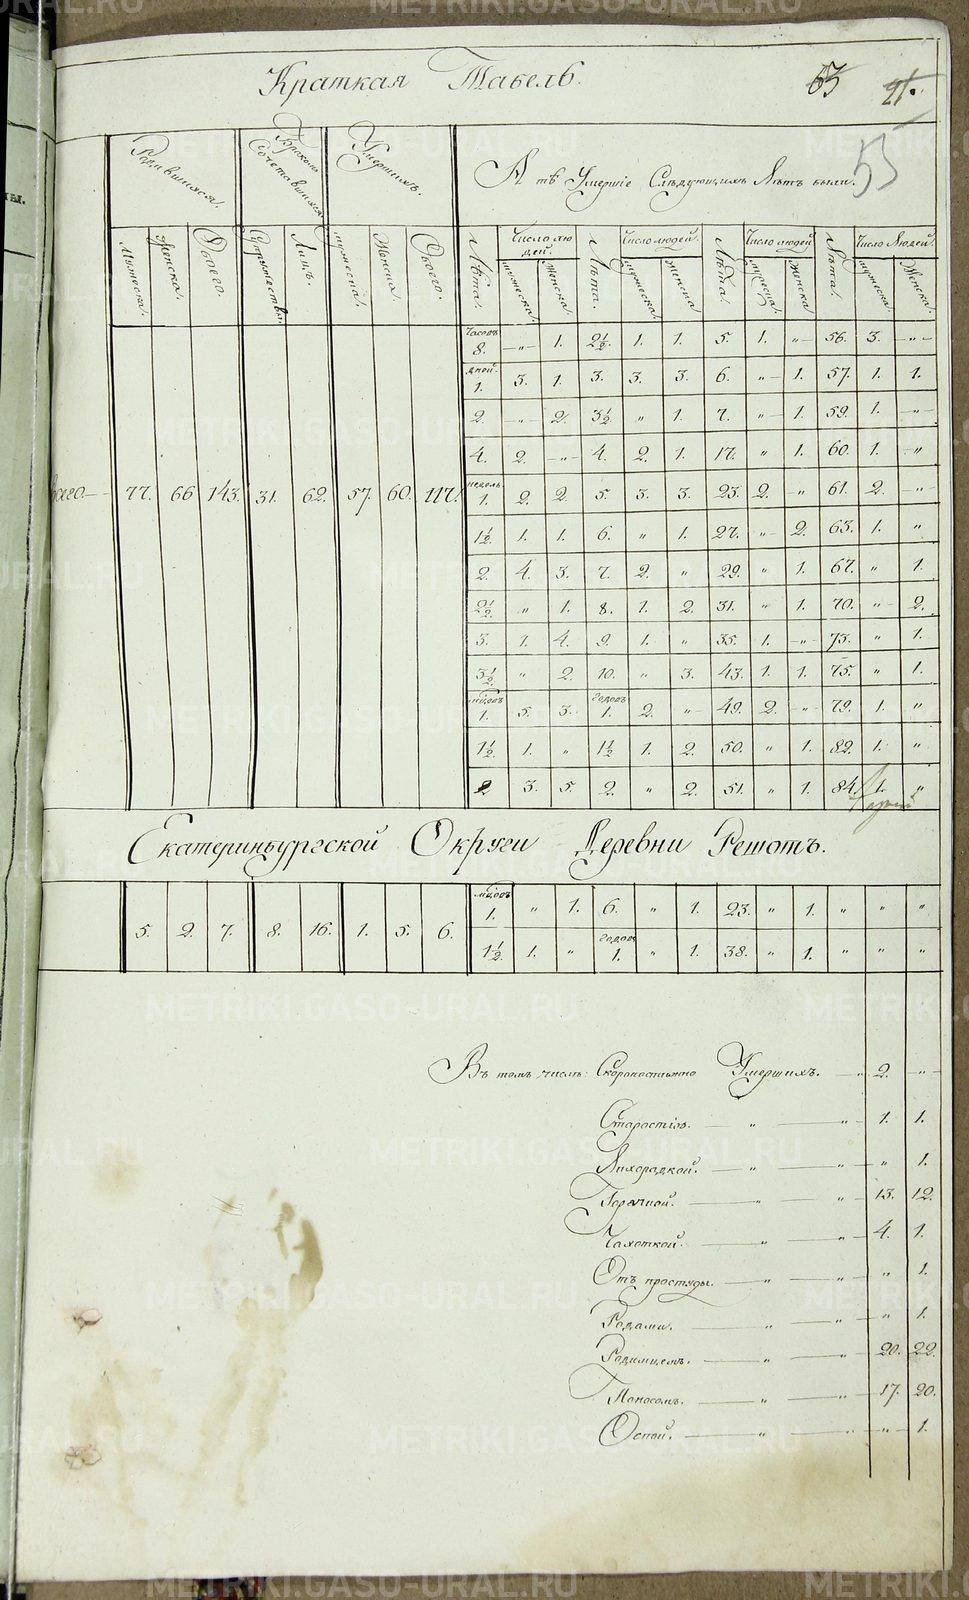 Краткая Табель.
63 21.
53
Родившихся. Бракомъ Сочетавшихся Умершихъ. А тѣ Умершіе Слѣдующихъ Лѣтъ были.
Мужеска. Женска. Обоего. Супружествъ Лицъ. мужеска. Женска. Обоего. Лѣта. Число людей. Лѣта. Число людей. Лѣта. Число людей Лѣта. Число Людей.
мужеска. Женска. мужеска. Женска. мужеска. Женска мужеска. Женска.
Часовъ 8. —„— 1. 2½. 1. 1. 5. 1. „— 56. 3. —„—
дней. 1. 3. 1. 3. 3. 3. 6. „— 1. 57. 1. 1.
2. —„— 2. 3½ „ 1. 7. „— 1. 59. 1. —„—
4. 2. —„— 4. 2. 1. 17. „ 1. 60. 1. —„
Всего— 77. 66 143. 31. 62. 57. 60. 117.
недѣль. 1. 2. 2. 5. 3. 3. 23. 2. „ 61. 2. —„
1½. 1. 1. 6. „ 1. 27. „— 2. 63. 1. „
2. 4. 3. 7. 2. „ 29. „ 1. 67. „ 1.
2½. „ 1. 8. 1. 2. 31. „ 1. 70. „ 2.
3. 1. 4. 9. 1. „ 35. 1. —„— 73. „ 1.
3½. „ 2. 10. „ 3. 43. 1. 1. 75. „ 1.
мцовъ 1. 5. 3. годовъ 1. 2. „— 49. 2. —„— 79. 1. „
1½. 1. „ 1½ 1. 2. 50. „ 1. 82. 1. „
2 3. 5. 2. „ 2. 51. „ 1. 84. 1. „
Екатеринбургской Округи Деревни Решотъ.
5. 2. 7. 8. 16. 1. 5. 6.
мцовъ 1. „ 1. 6. „ 1. 23. „ 1. „ „ „
1½. 1. „ годовъ 1. „ 1. 38. „ 1. „ „ „
Въ томъ числѣ: Скоропостижно Умершихъ. —„ 2. —„—
Старостію. — „ — „ — 1. 1.
Лихорадкой. — „ — „ — „ 1.
Горячкой. — „ — „ — 13. 12.
Чахоткой. — „ — „ — 4. 1.
Отъ простуды. — „ — „ „ 1.
Родами. „ — „ — „ 1.
Родимцемъ. — „ — „ 20. 22.
Поносомъ. — „ — „ — 17. 20.
Оспой. — „ — „ — „ — 1.
METRIKI.GASO-URAL.RU